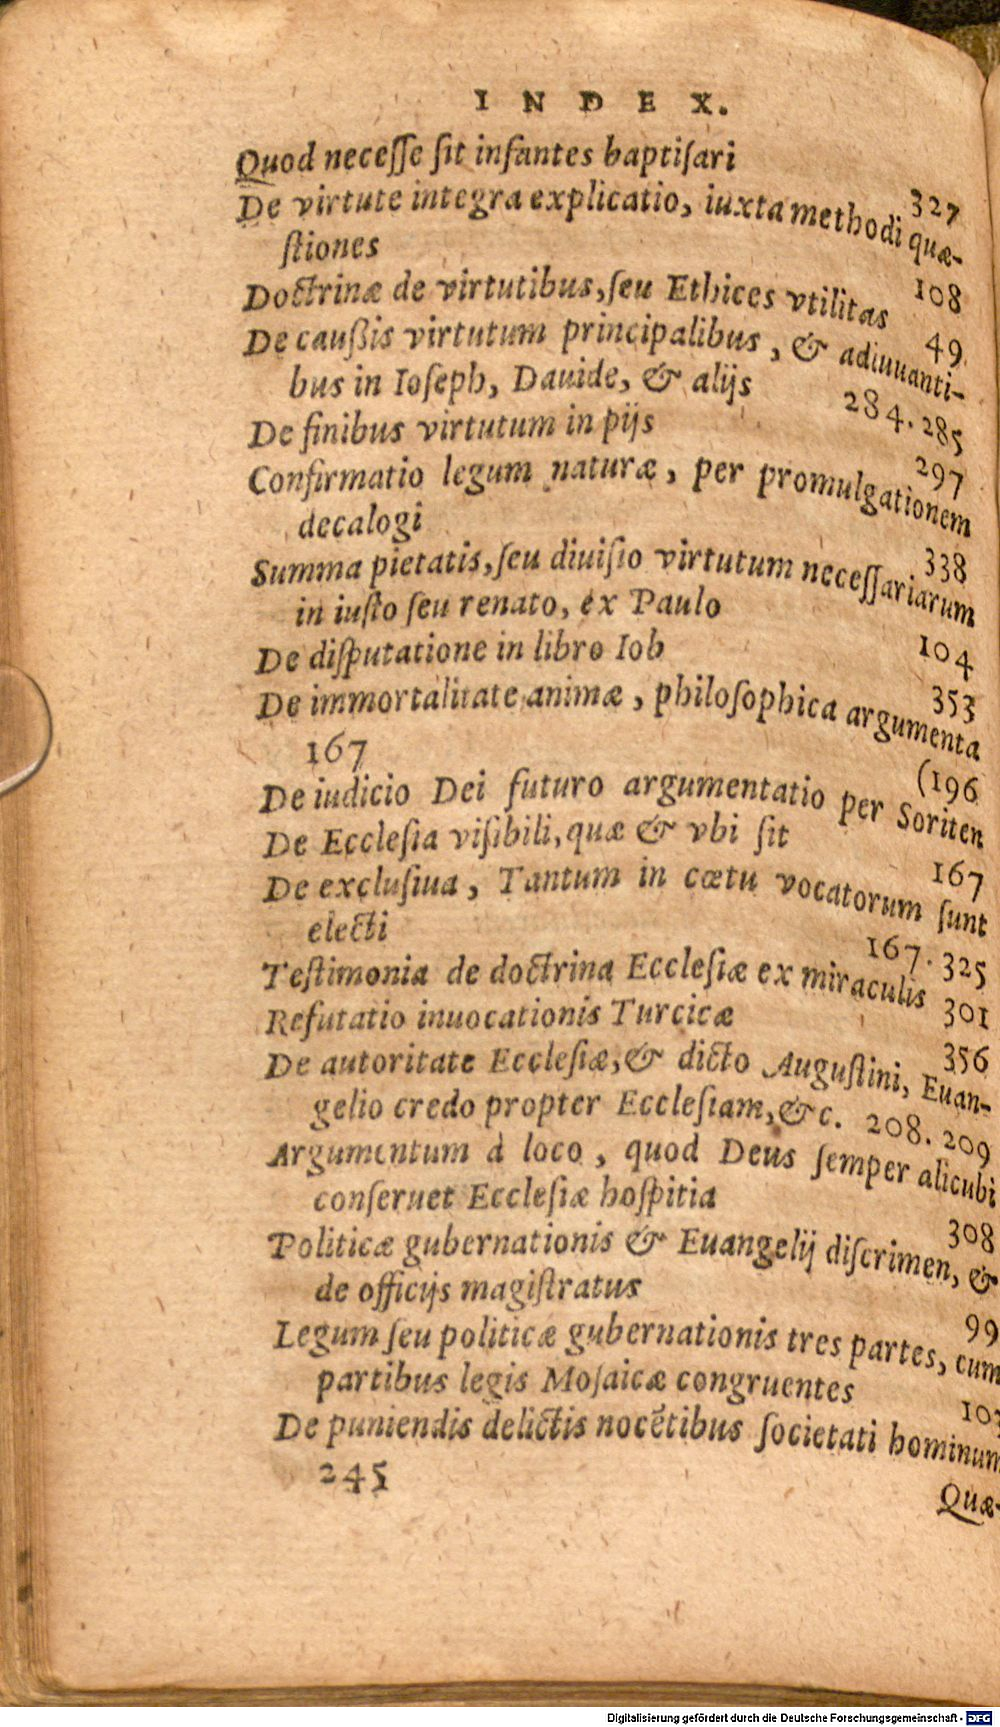 INDEX.
Quod necesse sit infantes baptisari 327
De virtute integra explicatio, iuxta methodi quæ-
stiones 108
Doctrinæ de virtutibus, seu Ethices vtilitas 49
De caussis virtutum principalibus, & adiuuanti-
bus in Ioseph, Dauide, & alijs 284. 285
De finibus virtutum in pijs 297
Confirmatio legum naturæ, per promulgationem
decalogi 338
Summa pietatis, seu diuisio virtutum necessariarum
in iusto seu renato, ex Paulo 104
De disputatione in libro Iob 353
De immortalitate animæ, philosophica argumenta
167 (196
De iudicio Dei futuro argumentatio per Soriten
De Ecclesia visibili, quæ & vbi sit 167
De exclusiua, Tantum in cœtu vocatorum sunt
electi 167. 325
Testimonia de doctrina Ecclesiæ ex miraculis 301
Refutatio inuocationis Turcicæ 356
De autoritate Ecclesiæ, & dicto Augustini, Euan-
gelio credo propter Ecclesiam, &c. 208. 209
Argumentum à loco, quod Deus semper alicubi
conseruet Ecclesiæ hospitia 308
Politicæ gubernationis & Euangelij discrimen, &
de officijs magistratus 99
Legum seu politicæ gubernationis tres partes, cum
partibus legis Mosaicæ congruentes
De puniendis delictis nocẽtibus societati hominum
245
Quæ-
Digitalisierung gefördert durch die Deutsche Forschungsgemeinschaft - DFG